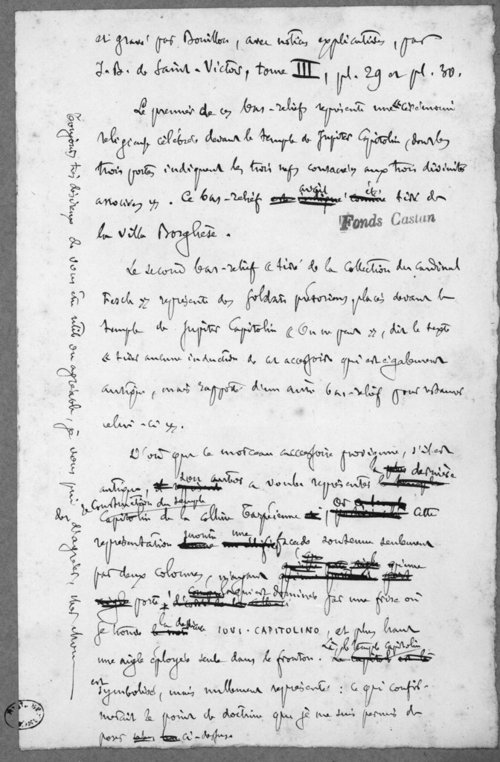 et gravé par Bouillon, avec notices explicatives, par
J. B. de Saint-Victor, tome III, pl. 29 et pl. 30.
Le premier de ces bas-reliefs représente une « cérémonie
religieuse célébrée devant le temple de Jupiter Capitolin, dont les
trois portes indiquent les trois nefs consacrées aux trois divinités
associées ». Ce bas-relief avait été tiré de
la villa Borghèse.
Fonds Castan
Le second bas-relief « tiré de la Collection du Cardinal
Fesch » représente des soldats prétoriens, placés devant le
temple de Jupiter Capitolin « On ne peut », dit le texte
« tirer aucune induction de cet accessoire qui est également
antique, mais rapporté d'un autre bas-relief pour restaurer
celui-ci ».
D'où que ce morceau accessoire provienne, s'il est
antique, son auteur a voulu représenter la dernière
reconstruction du temple
Capitolin de la colline Tarpéienne, cette
représentation une façade soutenue seulement
par deux colonnes, n'ayant qu'une
porte, dominée par une frise où
je trouve IOVI·CAPITOLINO, et plus haut
une aigle éployée seule dans le fronton. Là, le temple Capitolin
est symbolisé, mais nullement représenté : ce qui confir-
merait le point de doctrine que je me suis permis de
poser ci-dessus.
Toujours très désireux de vous être utile ou agréable, je vous prie d'agréer, cher